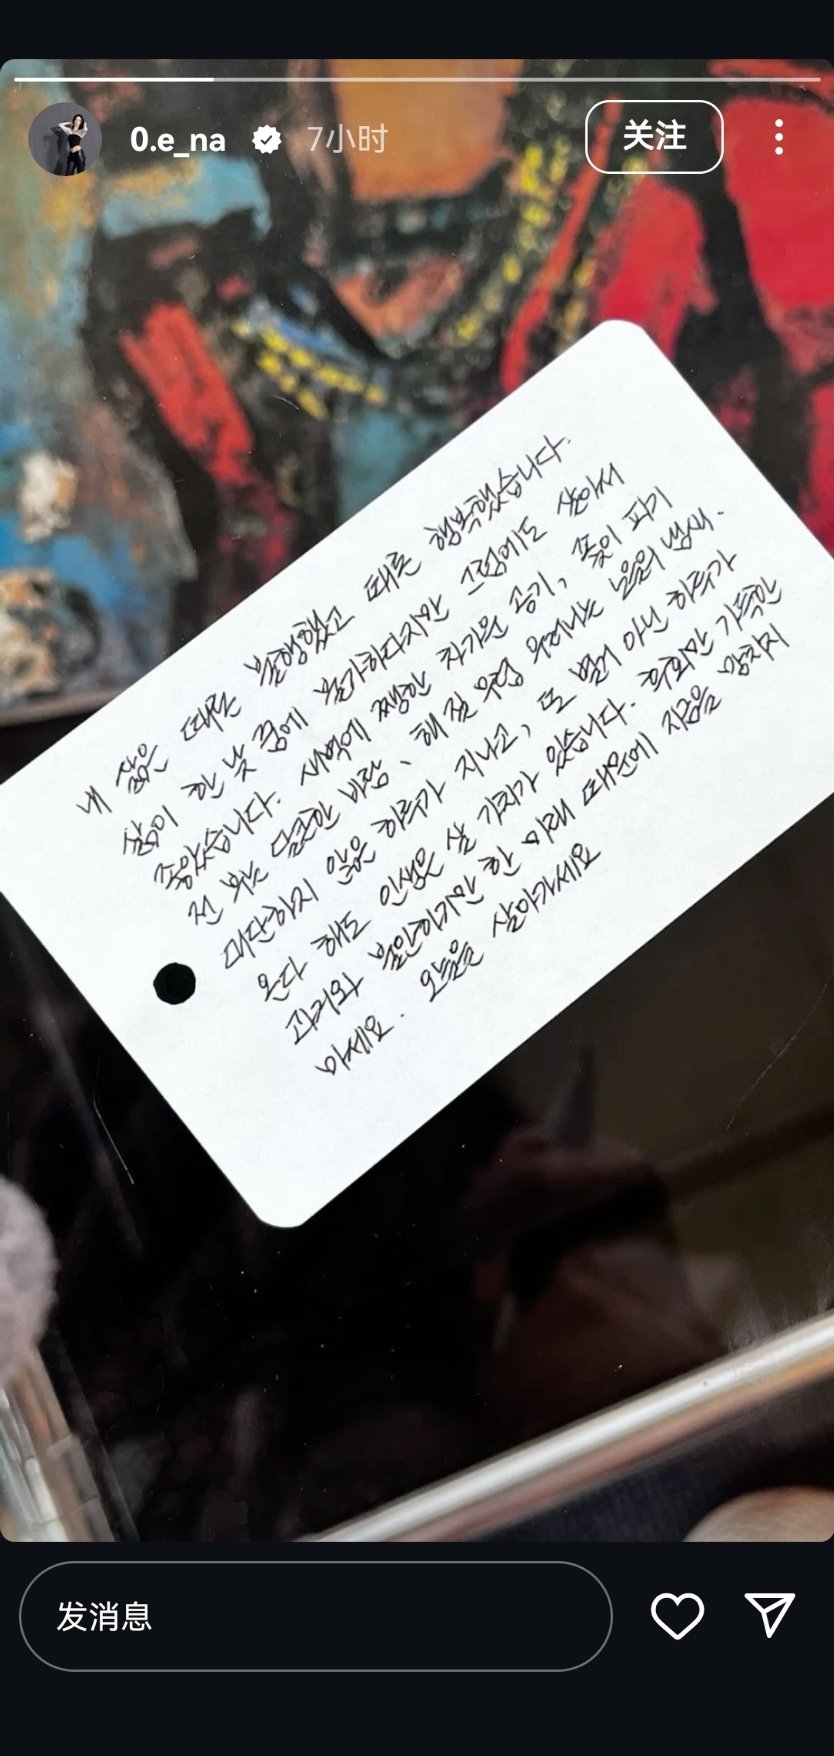 0.e_na 7小时 关注
내 삶은 때론 불행했고 때론 행복했습니다.
삶이 한 낮 꿈에 불가하다지만 그럼에도 살아서
좋았습니다. 새벽에 쨍한 차가운 공기, 꽃이 피기
전 부는 달큰한 바람, 해 질 무렵 우러나는 노을의 냄새.
대단하지 않은 하루가 지나고, 또 별거 아닌 하루가
온다 해도 인생은 살 가치가 있습니다. 후회만 가득한
과거와 불안하기만 한 미래 때문에 지금을 망치지
마세요. 오늘을 살아가세요
发消息